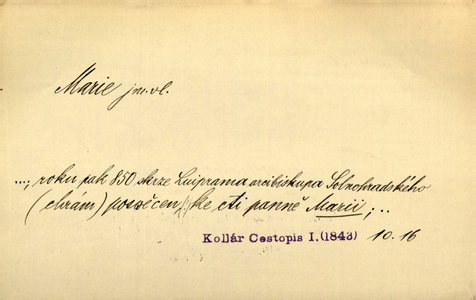 Marie jm. vl.
...; roku pak 850 skrze Luiprama arcibiskupa Solnohradského
(chrám) posvěcen ke cti panně Marii; ..
Kollár Cestopis I. (1843) 10. 16